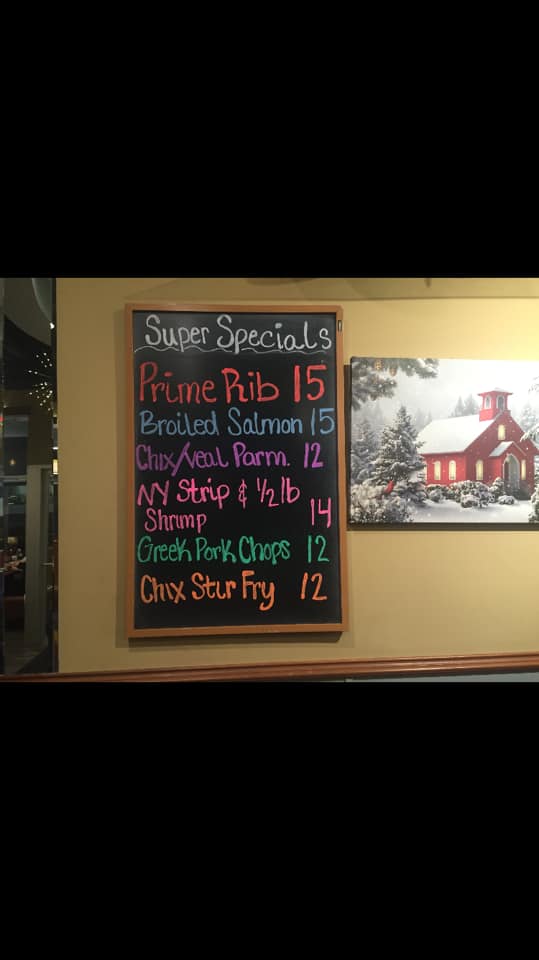 Super Specials
Prime Rib 15
Broiled Salmon 15
Chix/Veal Parm. 12
NY Strip & 1/2 lb
Shrimp 14
Greek Pork Chops 12
Chix Stir Fry 12